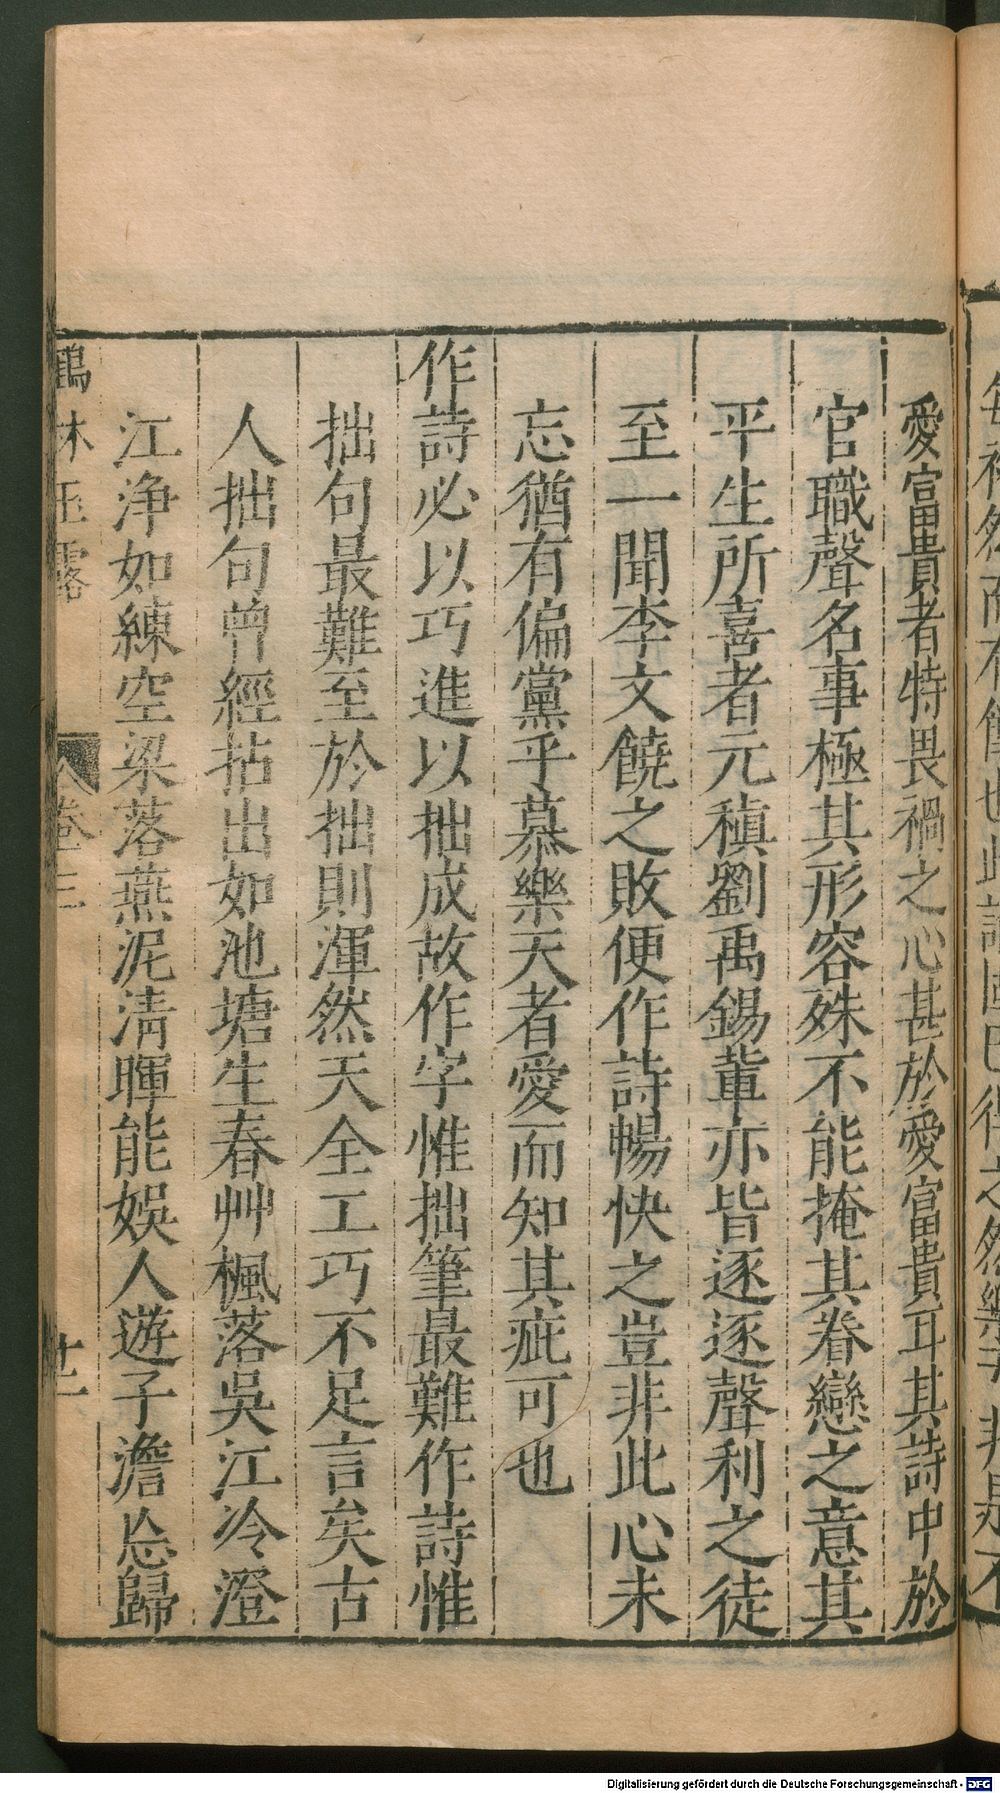 愛富貴者特畏禍之心甚於愛富貴耳其詩中於
官職聲名事極其形容殊不能掩其眷戀之意其
平生所喜者元稹劉禹錫軰亦皆逐逐聲利之徒
至一聞李文饒之敗便作詩暢快之豈非此心未
忘猶有偏黨乎慕樂天者愛而知其疵可也
作詩必以巧進以拙成故作字惟拙筆最難作詩惟
拙句最難至於拙則渾然天全工巧不足言矣古
人拙句曾經拈出如池塘生春艸楓落吳江冷澄
江浄如練空梁落燕泥清暉能娛人遊子澹忘歸
鶴林玉露 卷三 廿一
Digitalisierung gefördert durch die Deutsche Forschungsgemeinschaft - DFG